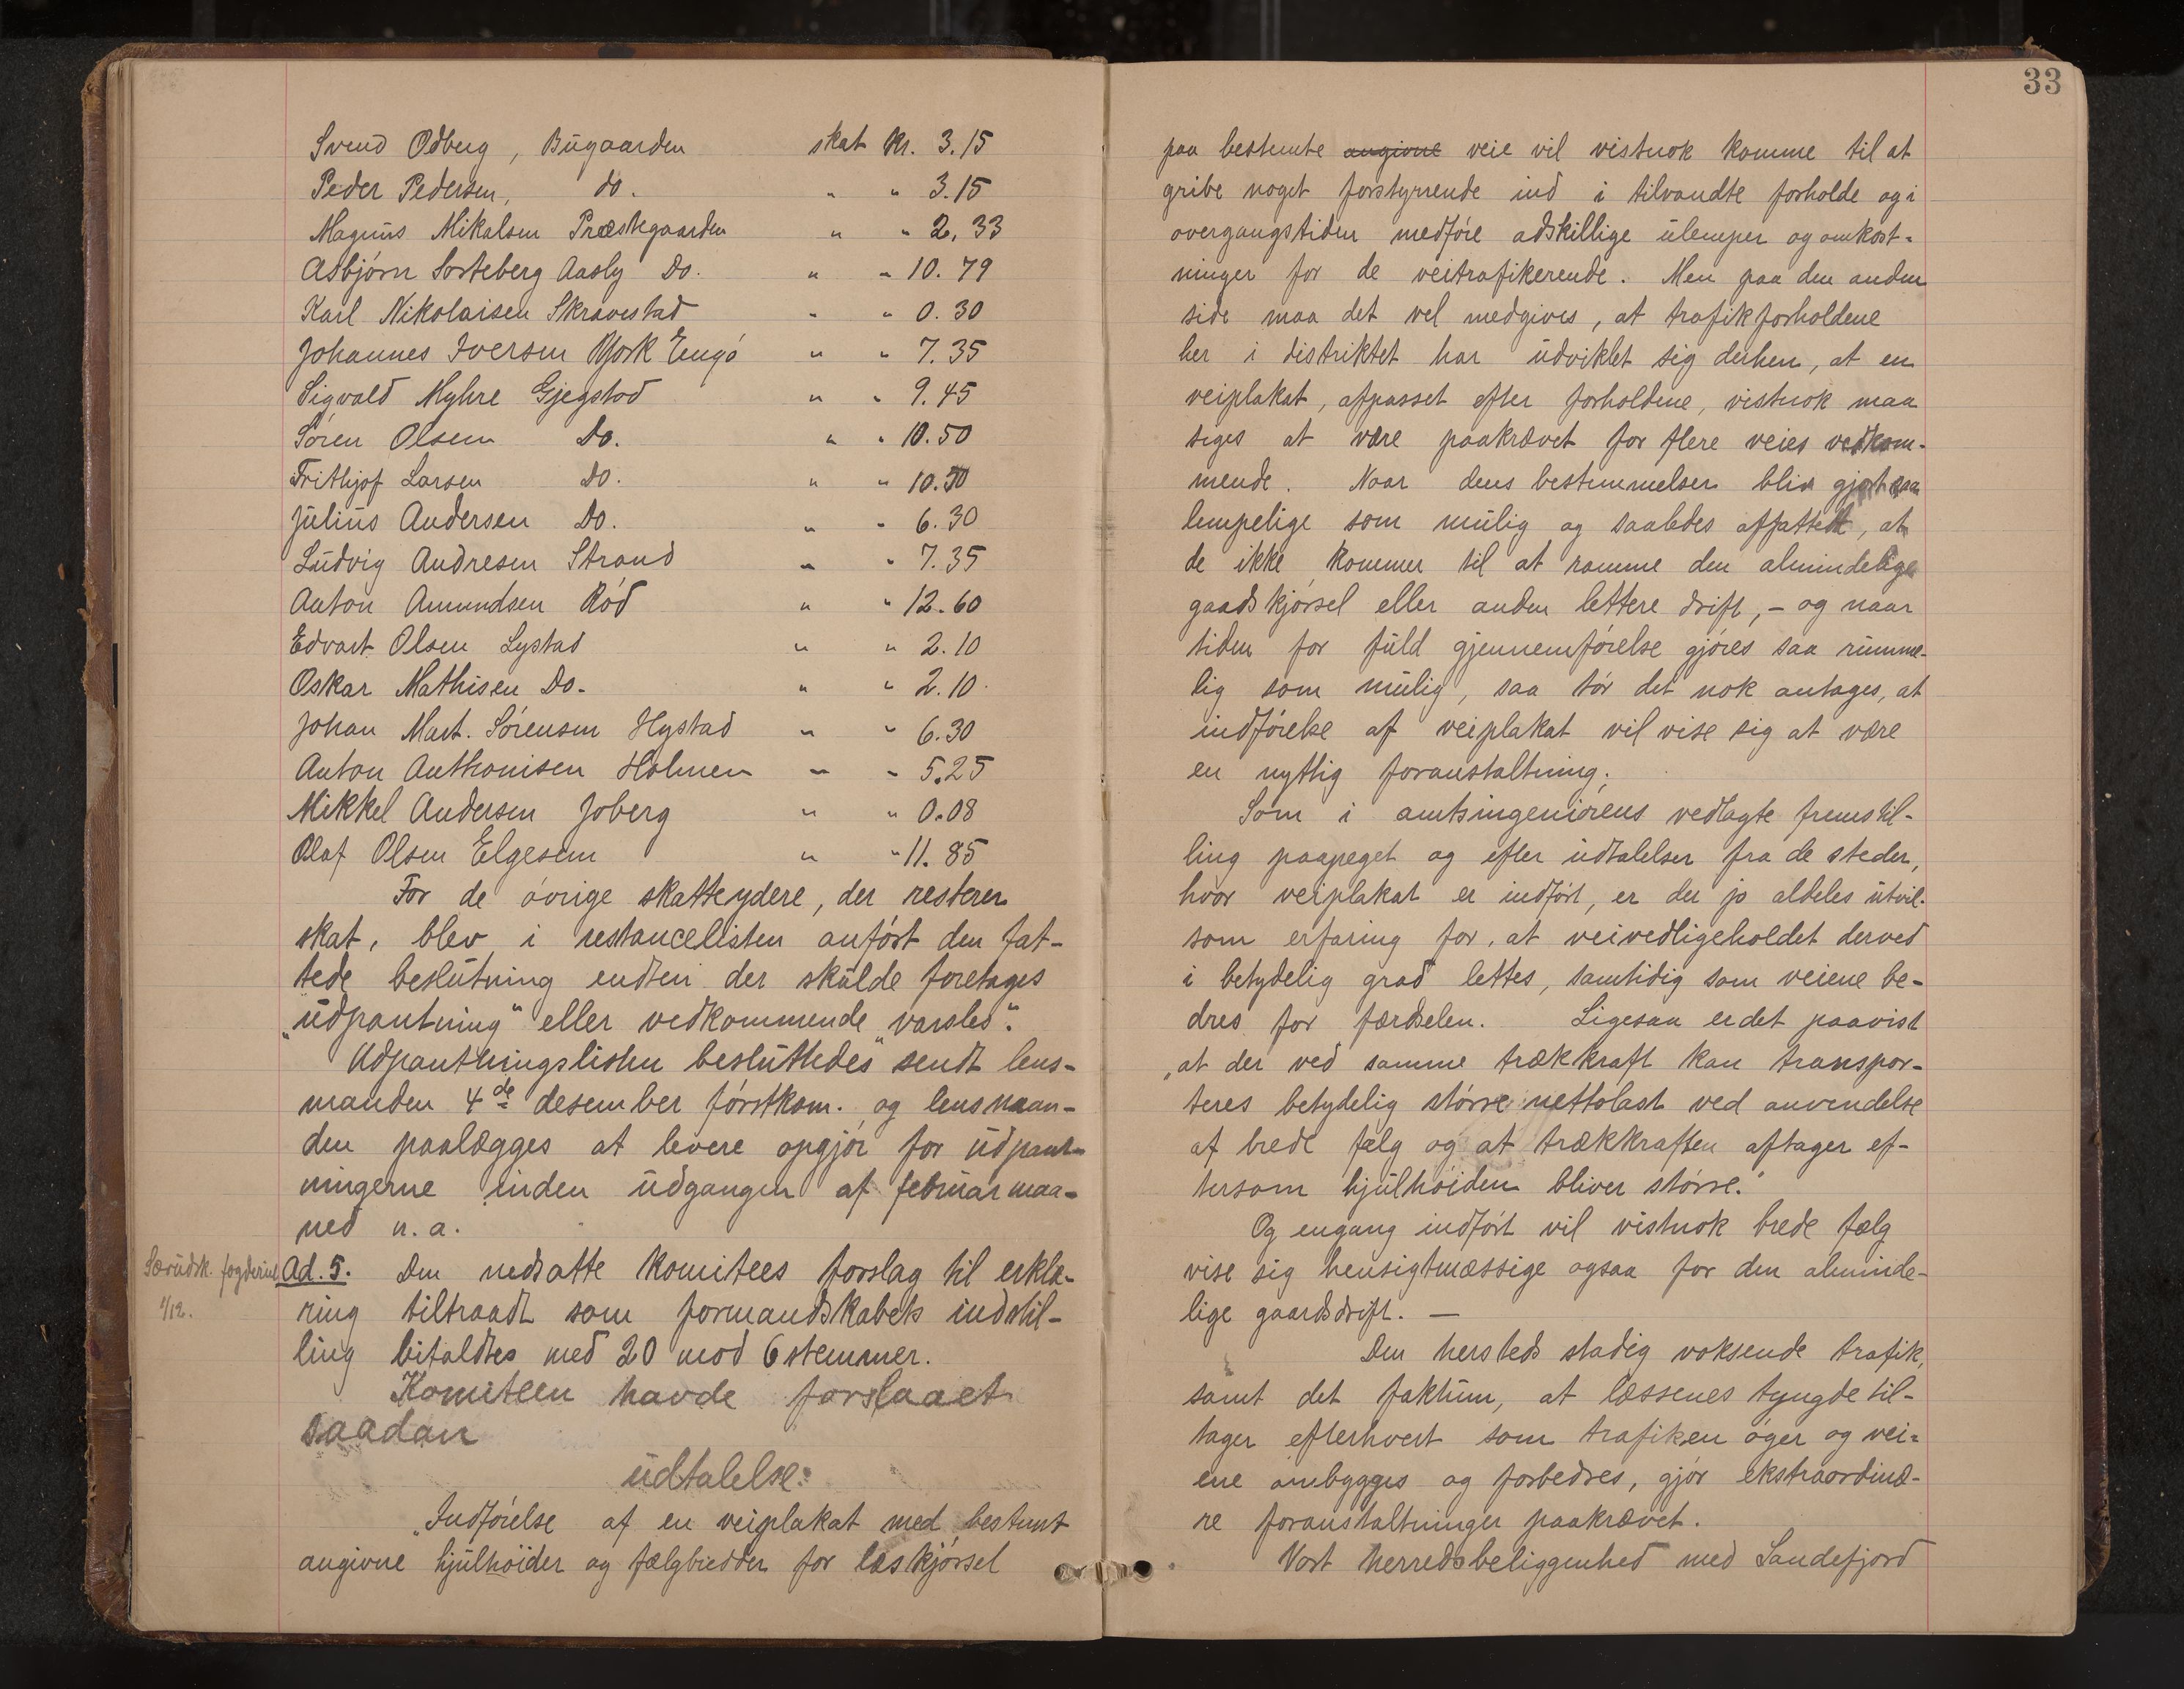 Svend Odberg, Bugaarden skat Kr. 3.15
Peder Pedersen, do. " " 3.15
Magnus Mikalsen Præstegaarden " " 2.33
Asbjørn Sorteberg Aasly Do. " " 10.79
Karl Nikolaisen Skravestad " " 0.30
Johannes Iversen Engø " " 7.35
Sigvald Myhre Gjegstad " " 9.45
Søren Olsen Do. " " 10.50
Frithjof Larsen Do. " " 10.50
Julius Andersen Do. " " 6.30
Ludvig Andresen Strand " " 7.35
Anton Amundsen Rød " " 12.60
Edvart Olsen Lystad " " 2.10
Oskar Mathisen Do. " " 2.10
Johan Mart. Sørensen Hystad " " 6.30
Anton Anthonisen Holmen " " 5.25
Mikkel Andersen Joberg " " 0.08
Olaf Olsen Elgesem " " 11.85
For de øvrige skatteydere, der resterer
skat, blev i restancelisten anført den fat-
tede beslutning enten der skulde foretages
„udpantning" eller vedkommende „varsles".
Udpantningslisten besluttedes sendt lens-
manden 4de desember førstkom. og lensmaan-
den paalægges at levere opgjør for udpant-
ningerne inden udgangen af februar maa-
ned n.a.
Særudsk. fogderiet
1/12.
Ad. 5. Den nedsatte komitees forslag til erklæ-
ring tiltraadt som formandskabets indstil-
ling bifaldtes med 20 mod 6 stemmer.
Komiteen havde forslaaet
saadan
udtalelse:
„Indførelse af en veiplakat med bestemt
angivne hjulhøider og fælgbredder for læskjørsel
33
paa bestemte angivne veie vil vistnok komme til at
gribe noget forstyrrende ind i tilvandte forholde og i
overgangstiden medføre adskillige ulemper og omkost-
ninger for de veitrafikerende. Men paa den anden
side maa det vel medgives, at trafikforholdene
her i distriktet har udviklet sig derhen, at en
veiplakat, afpasset efter forholdene, vistnok maa
siges at være paakrævet for flere veies vedkom-
mende. Naar dens bestemmelser blir gjort saa
lempelige som mulig og saaledes affattet, at
de ikke kommer til at ramme den almindelige
gaadskjørsel eller anden lettere drift, – og naar
tiden for fuld gjennemførelse gjøres saa rumme-
lig som mulig, saa tør det nok antages, at
indførelse af veiplakat vil vise sig at være
en nyttig foranstaltning.
Som i amtsingeniørens vedlagte fremstil-
ling paapeget og efter udtalelser fra de steder,
hvor veiplakat er indført, er der jo aldeles utvil-
som erfaring for, at veivedligeholdet derved
i betydelig grad lettes, samtidig som veiene be-
dres for færdselen. Ligesaa er det paavist
„at der ved samme trækkraft kan transpor-
teres betydelig større nettolast ved anvendelse
af brede fælg og at trækkraften aftager ef-
tersom hjulhøiden bliver større."
Og engang indført vil vistnok brede fælg
vise sig hensigtmæssige ogsaa for den alminde-
lige gaardsdrift. —
Den hersteds stadig voksende trafik,
samt det faktum, at læssenes tyngde til-
tager efterhvert som trafiken øger og vei-
ene ombygges og forbedres, gjør ekstraordinæ-
re foranstaltninger paakrævet.
Vort herredsbeliggenhed med Sandefjord